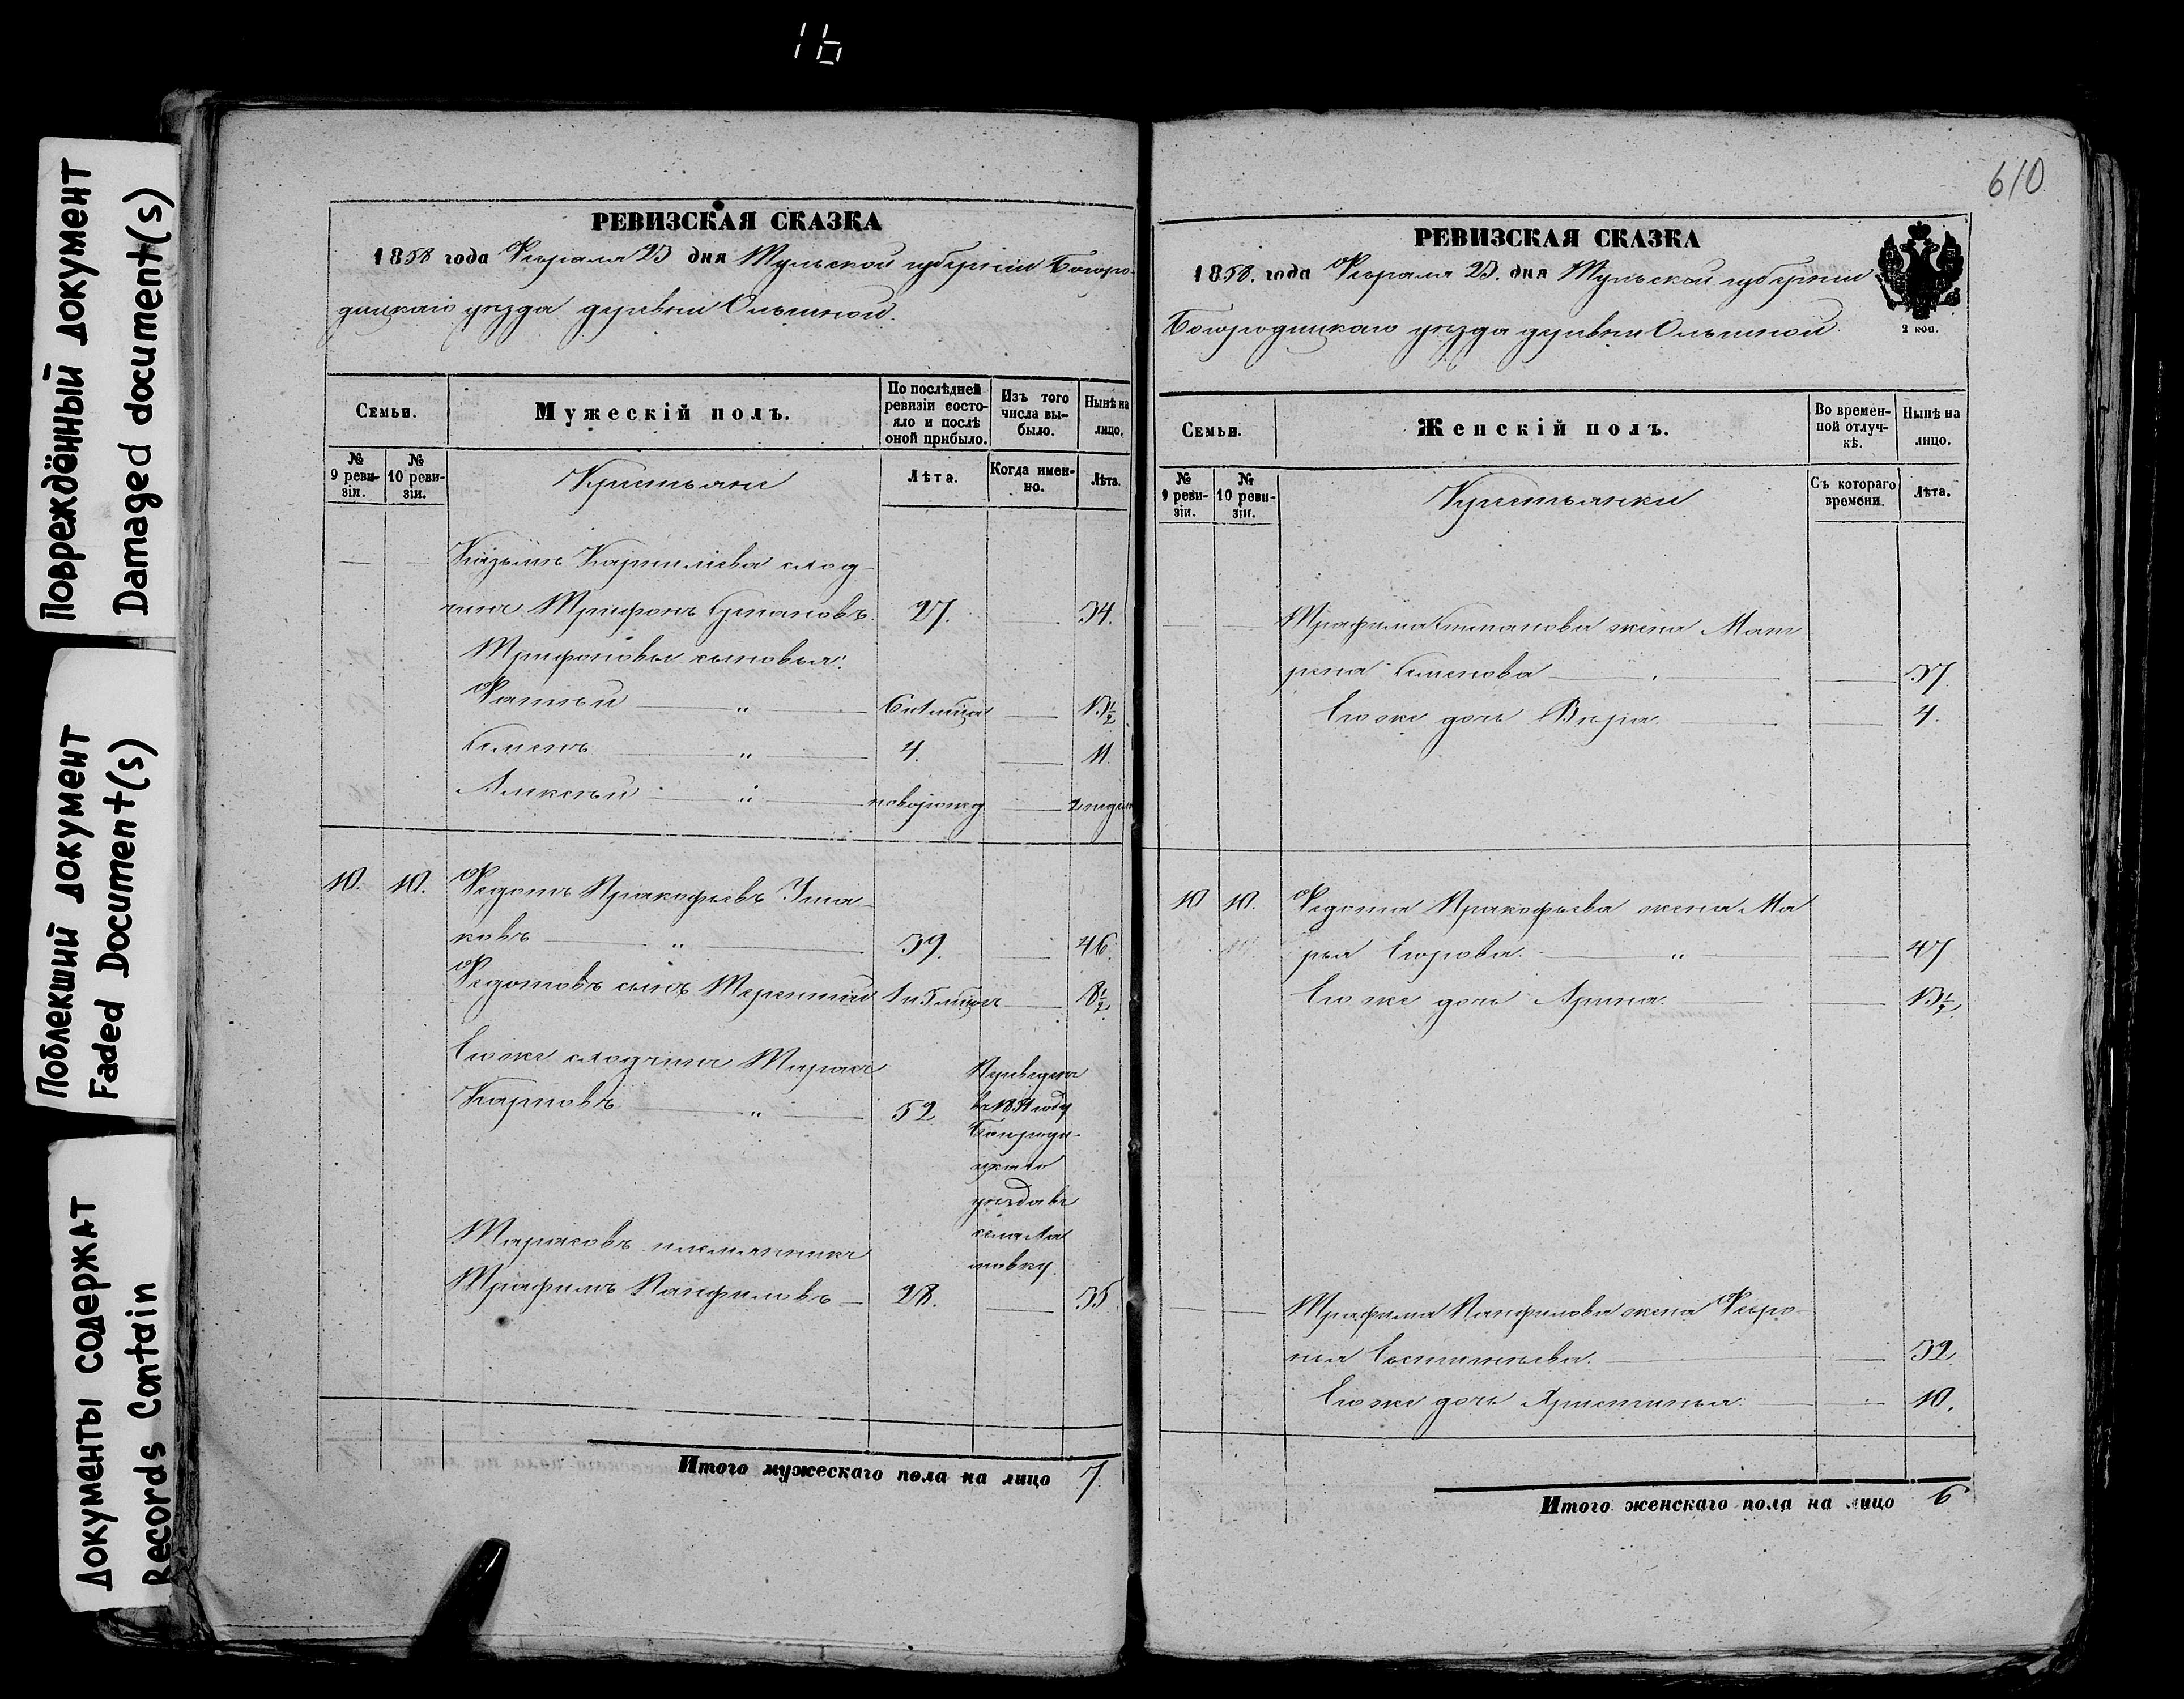 16
610
Повреждённый документ
Damaged document(s)
Поблекший документ
Faded Document(s)
Документы содержат
Records Contain
РЕВИЗСКАЯ СКАЗКА
1858 года Февраля 23 дня Тульской губернии Богоро-
дицкаго уезда деревни Ольшной.
Семьи.
Мужескій полъ.
По послѣдней ревизіи состояло и послѣ оной прибыло.
Изъ того числа выбыло.
Нынѣ на лицо.
№ 9 ревизіи.
№ 10 ревизіи.
Крестьяне
Лѣта.
Когда именно.
Лѣта.
— — Кузьмы
сынъ Трифонъ Степановъ. 27. — 34.
Трифоновы сыновья:
Фатѣй — " — — 13½
Семенъ — " — 4. — 11.
Алексѣй — " — новорожд — 2 недели
10. 10. Федотъ Пракофьевъ Уша-
ковъ — " — 39. — 46.
Федотовъ сынъ Терентий 1 и 5 месяцъ — 8½
Его же Тарасъ
Карповъ — " — 52
Переведенъ
въ 1851 году
Богороди-
цкаго
уезда въ
Тарасовъ племянникъ
Трафимъ Панфиловъ — 28. — 35
Итого мужескаго пола на лицо 7
РЕВИЗСКАЯ СКАЗКА
1858. года Февраля 23. дня Тульской губернии
Богородицкаго уезда деревни Ольшной
2 коп.
Семьи.
Женскій полъ.
Во временной отлучкѣ.
Нынѣ на лицо.
№ 9 ревизіи.
№ 10 ревизіи.
Крестьянки
Съ котораго времени.
Лѣта.
— — Степанова жена Мат
рена Семенова — — 37.
Его же дочь Вера. — — 4.
10 10. Федота Пракофьева жена Ма
рья Егорова. — " — — 47
Его же дочь Арина. — — 13½
— — Трафима Панфилова жена Февро-
нья — — 32
Его же дочь Христинья — — 10.
Итого женскаго пола на лицо 6